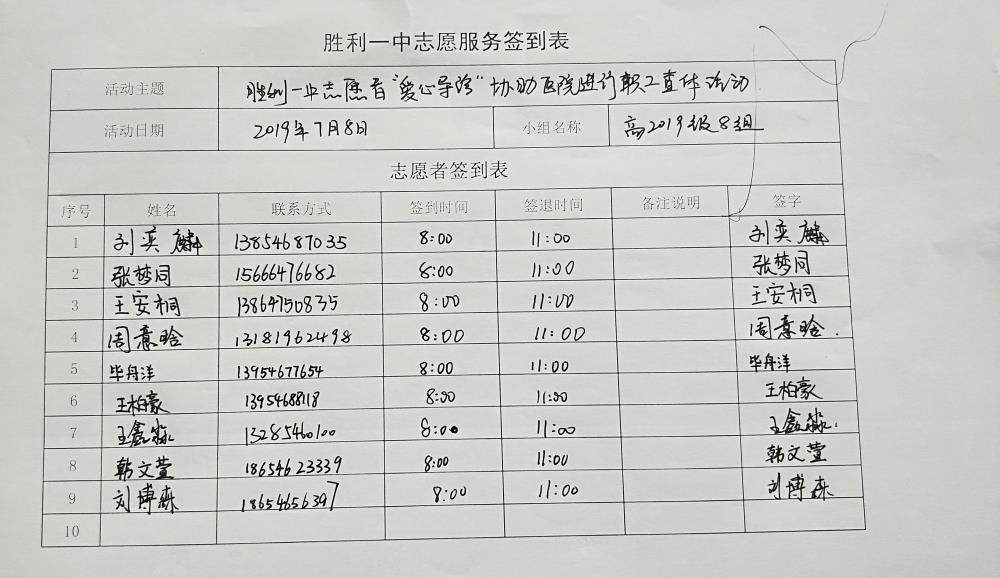 胜利一中志愿服务签到表
活动主题 胜利一中志愿者“爱心导诊”协助医院进行职工查体活动
活动日期 2019年7月8日 小组名称 高2019级8组
志愿者签到表
序号 姓名 联系方式 签到时间 签退时间 备注说明 签字
1 刘奕麟 13854687035 8:00 11:00 刘奕麟
2 张梦同 15666476682 8:00 11:00 张梦同
3 王安桐 13864750835 8:00 11:00 王安桐
4 周意晗 13181962498 8:00 11:00 周意晗.
5 毕舟洋 13954677654 8:00 11:00 毕舟洋
6 王柏豪 13954688118 8:00 11:00 王柏豪
7 王鑫淼 13285460100 8:00 11:00 王鑫淼.
8 韩文萱 18654623339 8:00 11:00 韩文萱
9 刘博森 18654656397 8:00 11:00 刘博森
10